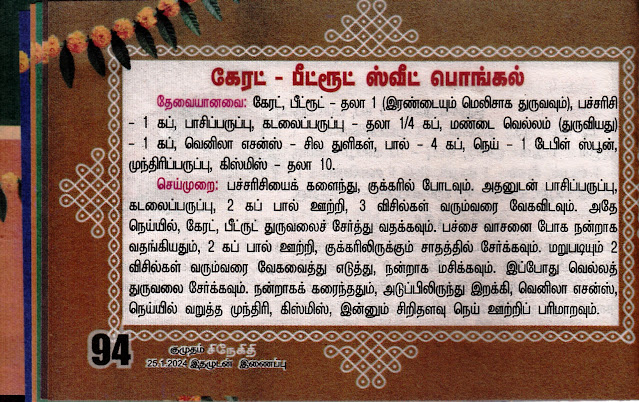 கேரட் - பீட்ரூட் ஸ்வீட் பொங்கல்
தேவையானவை: கேரட், பீட்ரூட் - தலா 1 (இரண்டையும் மெலிசாக துருவவும்), பச்சரிசி
- 1 கப், பாசிப்பருப்பு, கடலைப்பருப்பு - தலா 1/4 கப், மண்டை வெல்லம் (துருவியது)
- 1 கப், வெனிலா எசன்ஸ் - சில துளிகள், பால் - 4 கப், நெய் - 1 டேபிள் ஸ்பூன்,
முந்திரிப்பருப்பு, கிஸ்மிஸ் - தலா 10.
செய்முறை: பச்சரிசியைக் களைந்து, குக்கரில் போடவும். அதனுடன் பாசிப்பருப்பு,
கடலைப்பருப்பு, 2 கப் பால் ஊற்றி, 3 விசில்கள் வரும்வரை வேகவிடவும். அதே
நெய்யில், கேரட், பீட்ருட் துருவலைச் சேர்த்து வதக்கவும். பச்சை வாசனை போக நன்றாக
வதங்கியதும், 2 கப் பால் ஊற்றி, குக்கரிலிருக்கும் சாதத்தில் சேர்க்கவும். மறுபடியும் 2
விசில்கள் வரும்வரை வேகவைத்து எடுத்து, நன்றாக மசிக்கவும். இப்போது வெல்லத்
துருவலை சேர்க்கவும். நன்றாகக் கரைந்ததும், அடுப்பிலிருந்து இறக்கி, வெனிலா எசன்ஸ்,
நெய்யில் வறுத்த முந்திரி, கிஸ்மிஸ், இன்னும் சிறிதளவு நெய் ஊற்றிப் பரிமாறவும்.
94
குமுதம் சிநேகிதி
25.1.2024 இதழுடன் இணைப்பு